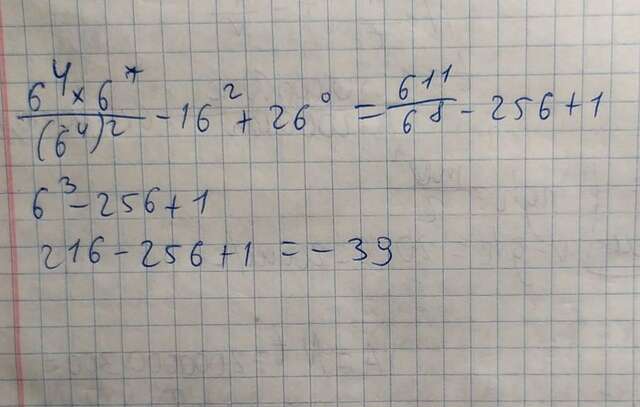 6⁴ × 6⁷ / (6⁴)² - 16² + 26⁰ = 6¹¹ / 6⁸ - 256 + 1
6³ - 256 + 1
216 - 256 + 1 = - 39